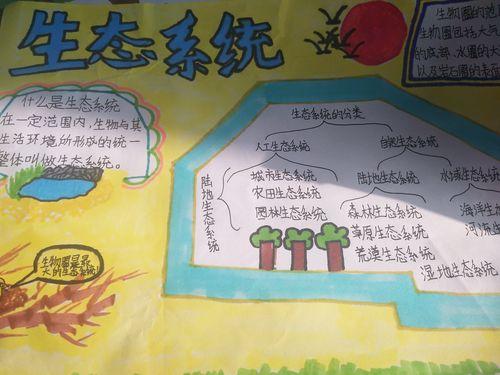 生态系统
生物圈的范
生物圈包括大气
的底部、水圈的大
以及岩石圈的表面
什么是生态系统
在一定范围内，生物与其
生活环境所形成的统一
整体叫做生态系统。
生态系统的分类
人工生态系统
自然生态系统
陆地生态系统
城市生态系统
农田生态系统
园林生态系统
陆地生态系统
水域生态系
森林生态系统
草原生态系统
荒漠生态系统
湿地生态系统
海洋生
河流生
生物圈是最
大的生态系统